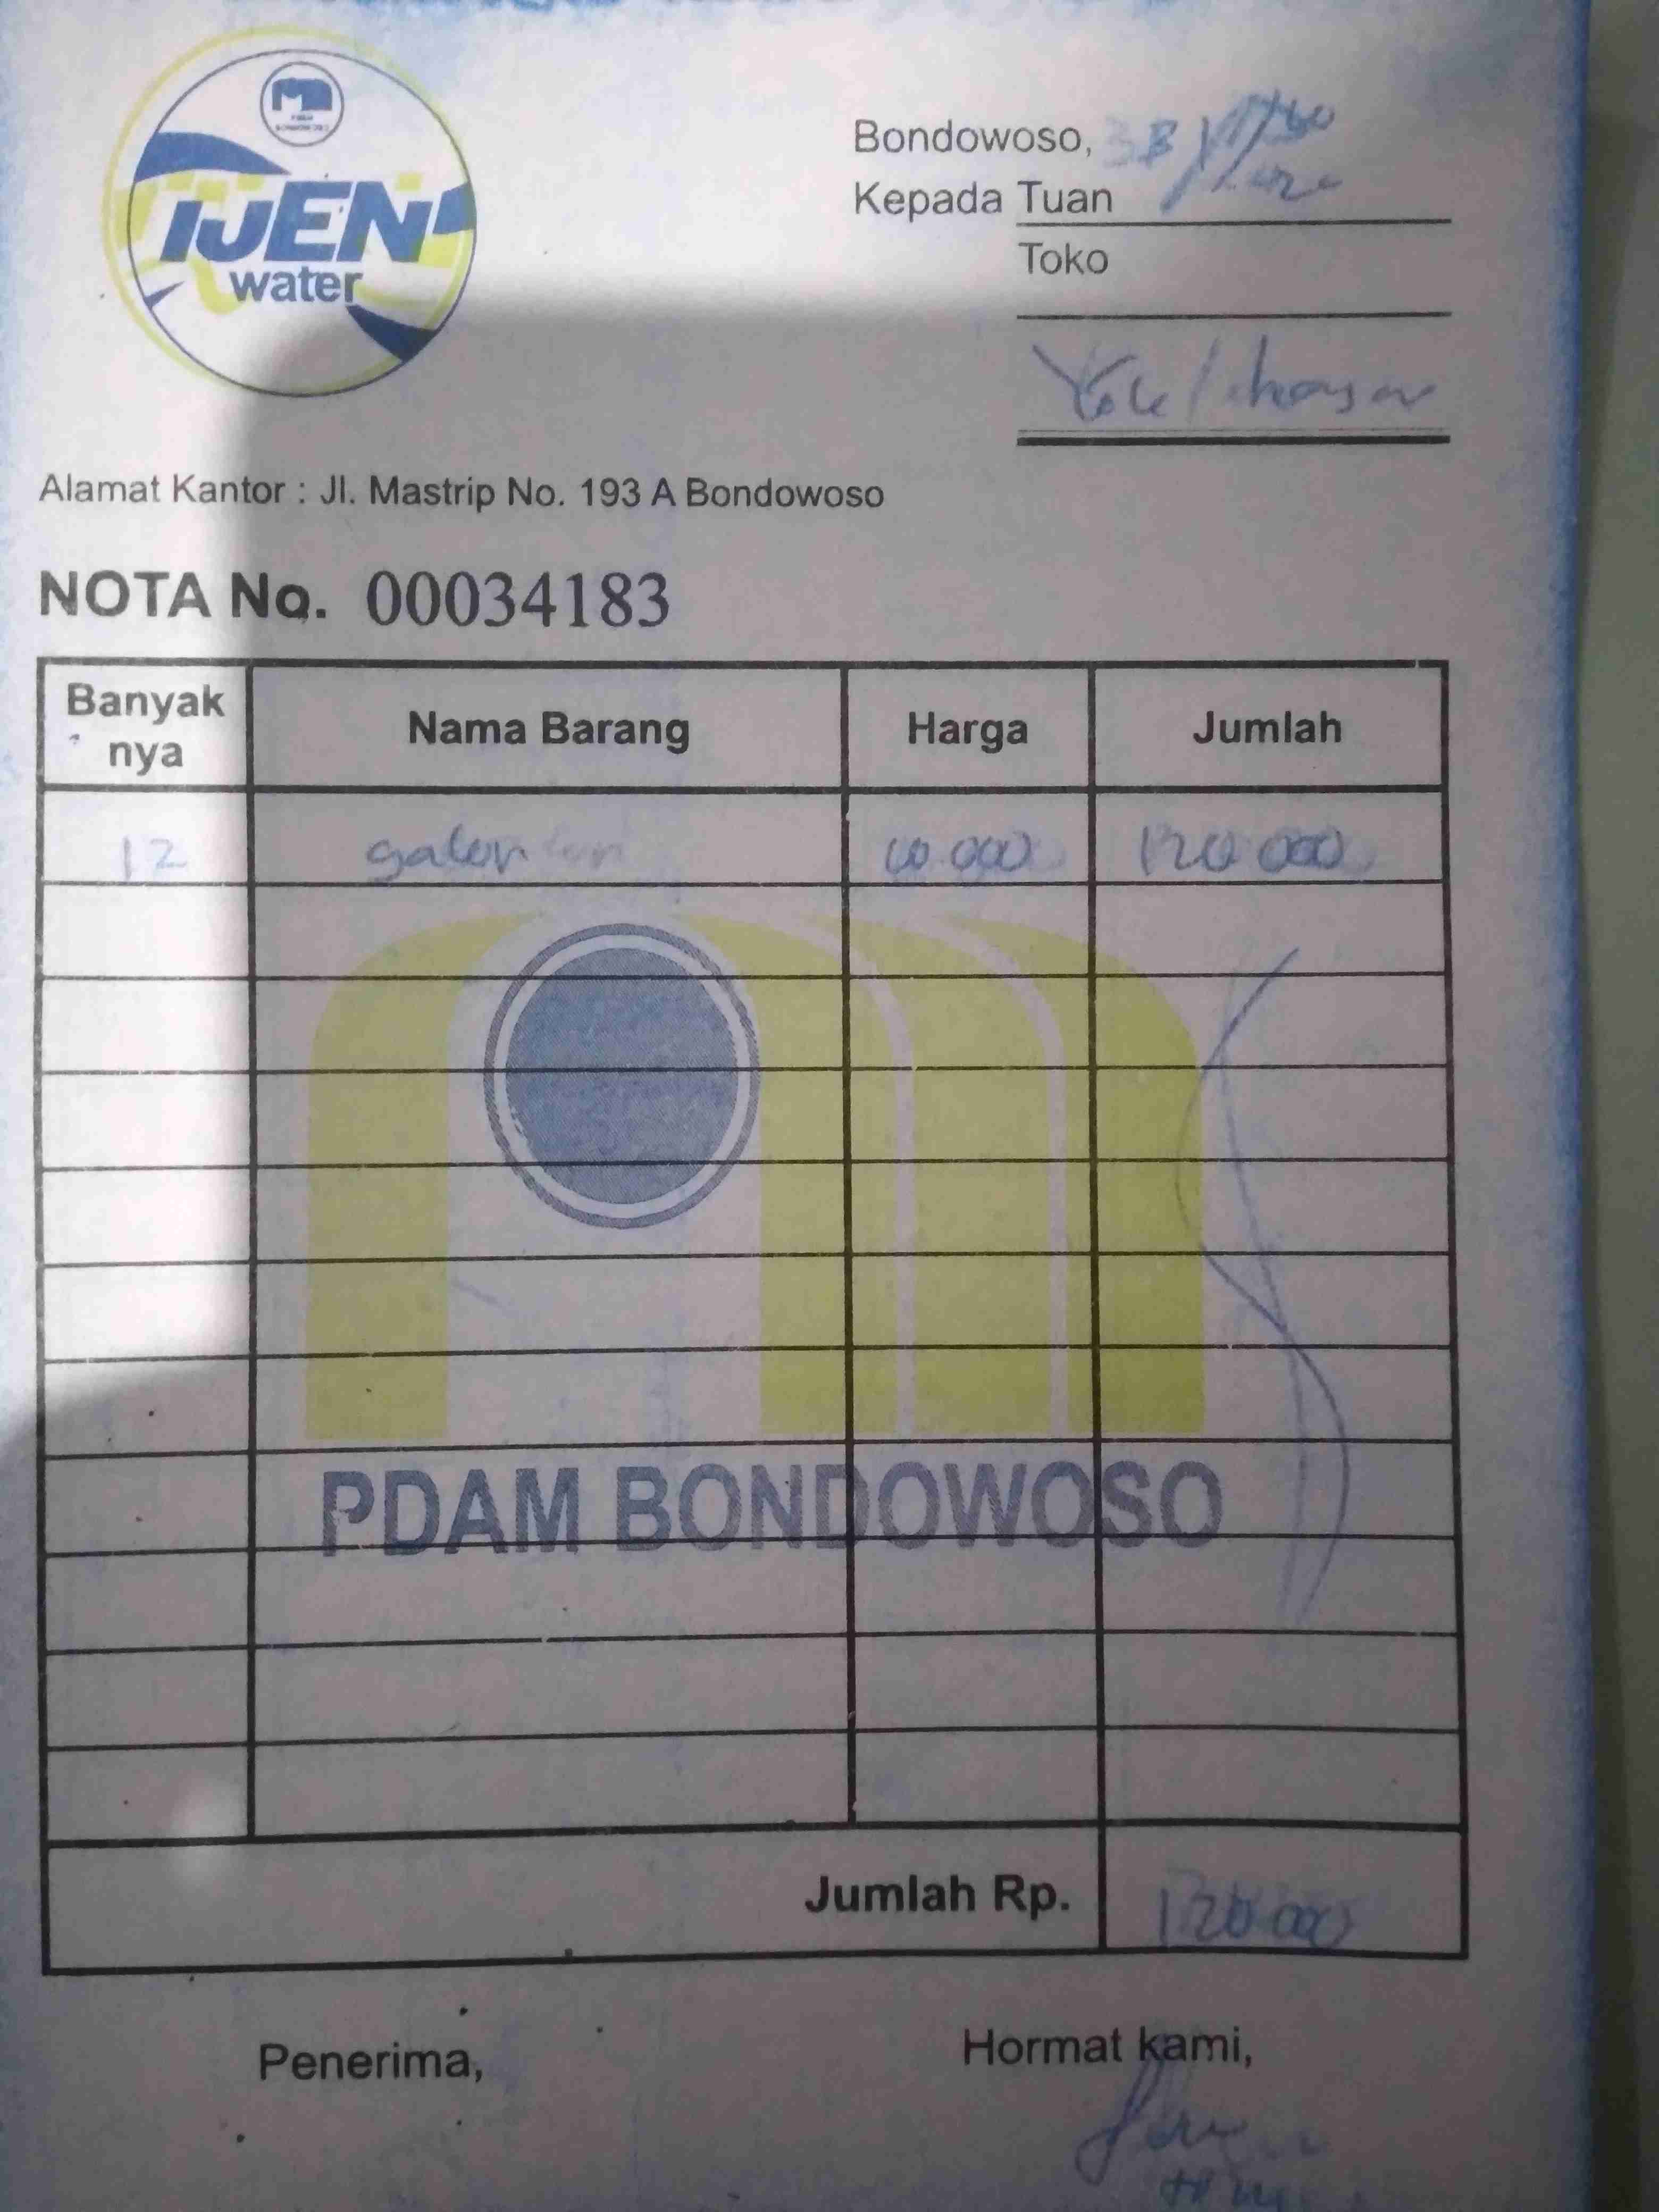 IJEN
water
Bondowoso,
Kepada Tuan
Toko
Alamat Kantor : Jl. Mastrip No. 193 A Bondowoso
NOTA No. 00034183
Banyak nya Nama Barang Harga Jumlah
12 galon 10.000 120 000
PDAM BONDOWOSO
Jumlah Rp. 120 000
Penerima, Hormat kami,